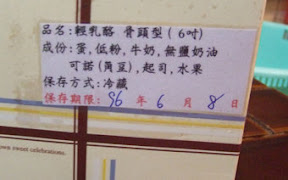 品名:輕乳酪 骨頭型(6吋)
成份:蛋,低粉,牛奶,無鹽奶油
可諾(黃豆),起司,水果
保存方式:冷藏
保存期限: 96 年 6 月 8 日
own sweet celebrations.